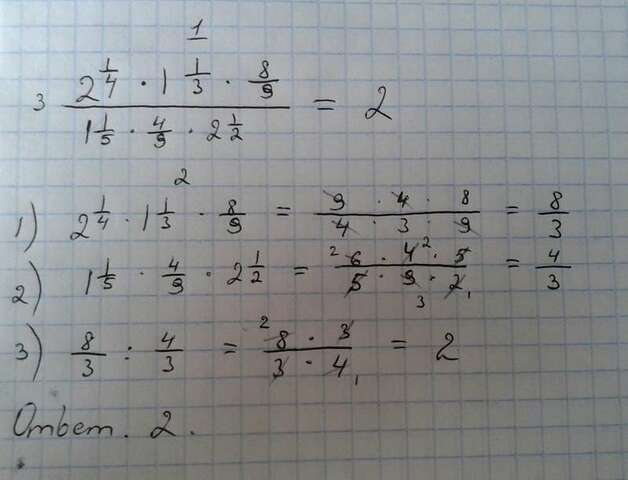 1
3 (2 1/4 · 1 1/3 · 8/9) / (1 1/5 · 4/9 · 2 1/2) = 2
2
1) 2 1/4 · 1 1/3 · 8/9 = (9 · 4 · 8) / (4 · 3 · 9) = 8/3
2) 1 1/5 · 4/9 · 2 1/2 = (²6 · 4² · 5) / (5 · 9₃ · 2₁) = 4/3
3) 8/3 : 4/3 = (²8 · 3) / (3 · 4₁) = 2
Ответ. 2.